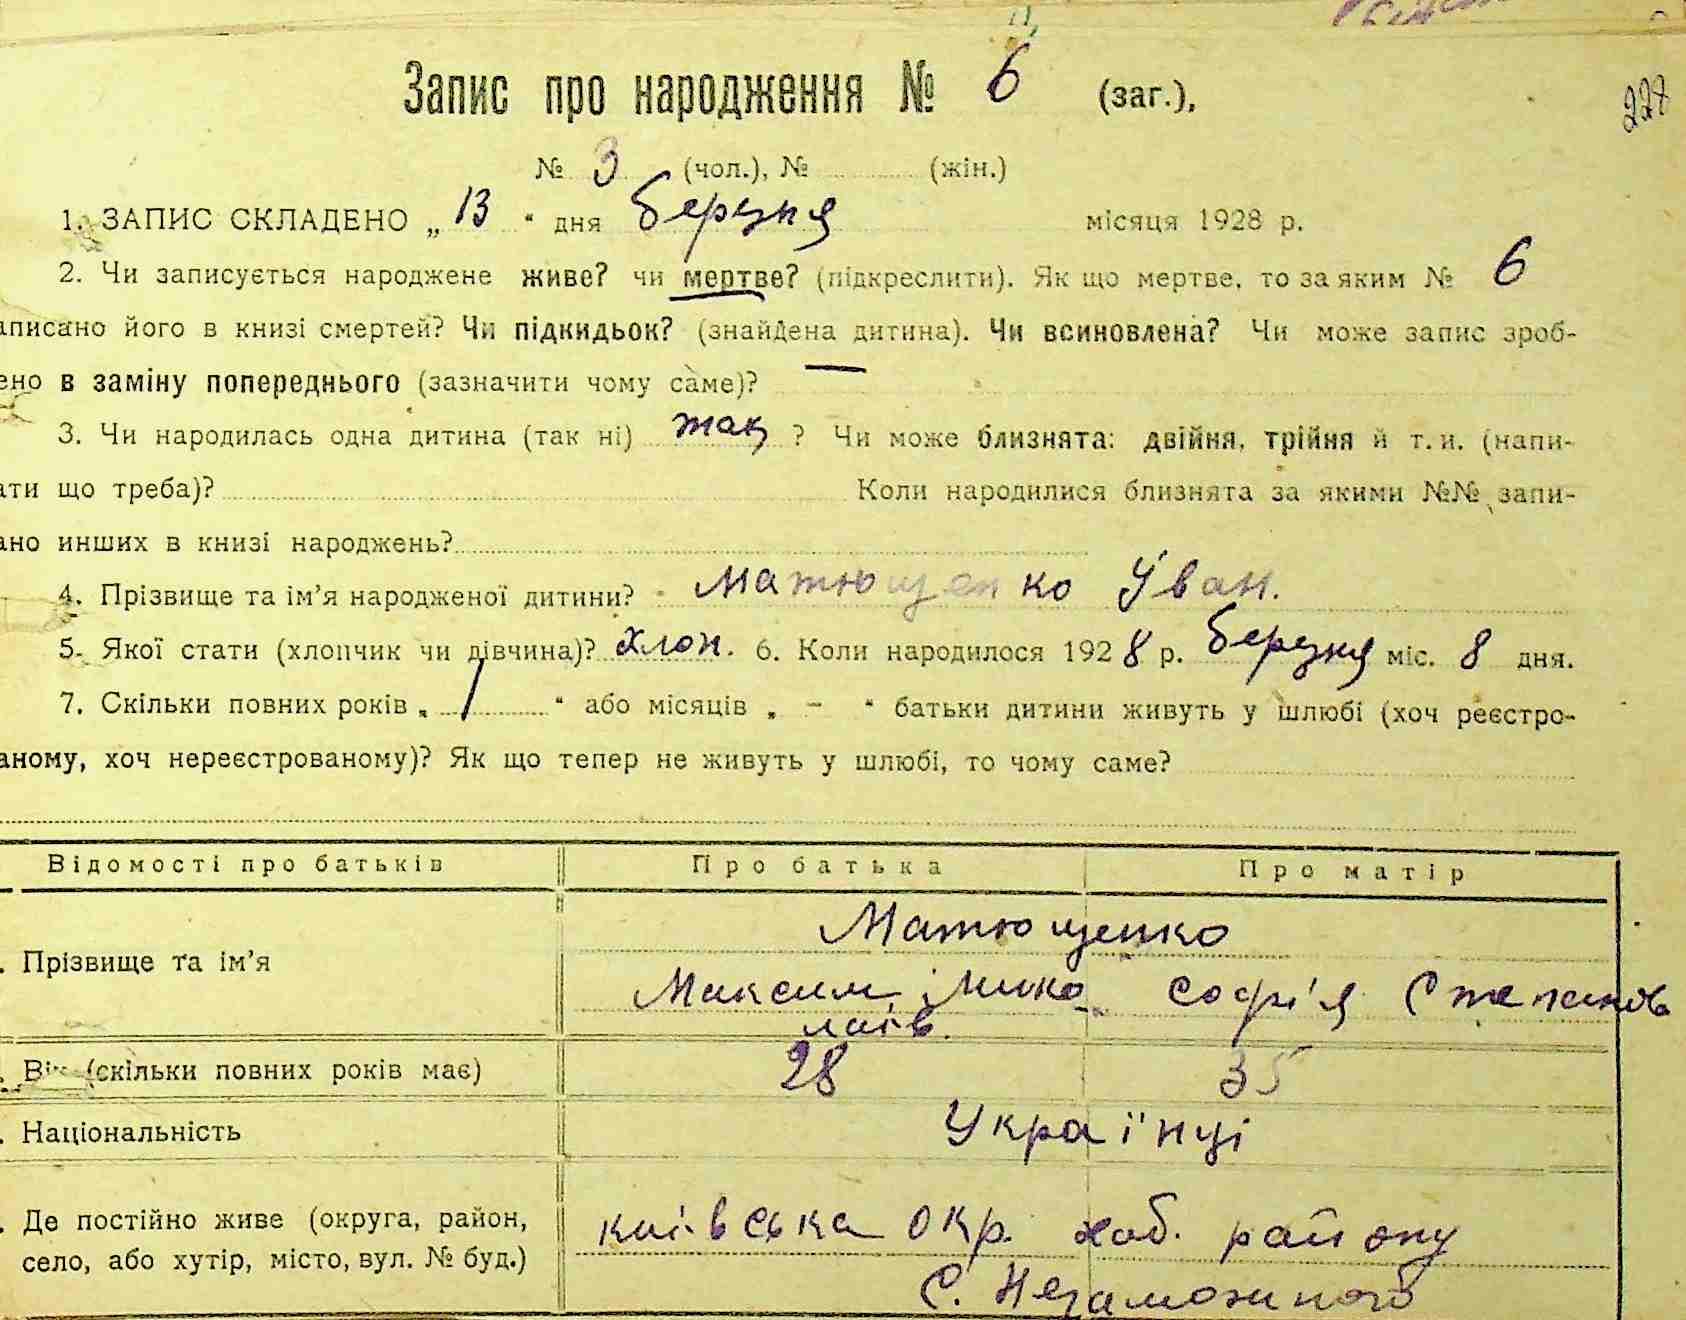 Запис про народження № 6 (заг.),
227
№ 3 (чол.), № (жін.)
1. ЗАПИС СКЛАДЕНО „ 13 “ дня березня місяця 1928 р.
2. Чи записується народжене живе? чи мертве? (підкреслити). Як що мертве, то за яким № 6
аписано його в книзі смертей? Чи підкидьок? (знайдена дитина). Чи всиновлена? Чи може запис зроб-
ено в заміну попереднього (зазначити чому саме)? —
3. Чи народилась одна дитина (так ні) так ? Чи може близнята: двійня, трійня й т. и. (напи-
ати що треба)? Коли народилися близнята за якими №№ запи-
ано инших в книзі народжень?
4. Прізвище та ім’я народженої дитини? Матющенко Іван.
5. Якої стати (хлопчик чи дівчина)? хлоп. 6. Коли народилося 1928 р. березня міс. 8 дня.
7. Скільки повних років „ 1 “ або місяців „ - “ батьки дитини живуть у шлюбі (хоч реєстро-
аному, хоч нереєстрованому)? Як що тепер не живуть у шлюбі, то чому саме?
Відомості про батьків Про батька Про матір
Матющенко
. Прізвище та ім’я
Максим Мико Софія Степанов
лаїв.
. Вік (скільки повних років має) 28 35
. Національність Українці
. Де постійно живе (округа, район, київська окр. хаб. району
село, або хутір, місто, вул. № буд.)
С. Незаможного